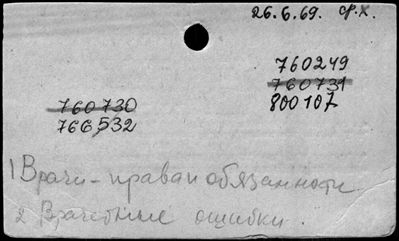 26.6.69. ф.х.
760249
760731
800107
760730
766532
1 Врачи - права и обязанности
2 Врачебные ошибки.